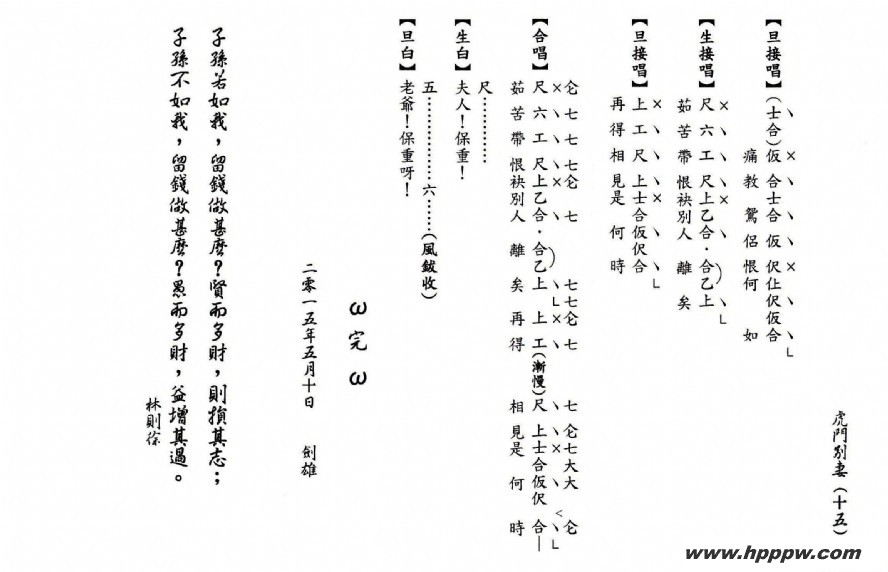 虎門別妻（十五）
【旦接唱】（士合）仮合士合仮伬仩伬仮合
痛教鴛侶恨何如
【生接唱】尺六工尺上乙合．合乙上
茹苦帶恨袂別人離矣
【旦接唱】上工尺上士合仮伬合
再得相見是何時
仑七七七仑七七七仑七七仑七大大仑
【合唱】尺六工尺上乙合．合乙上上工（漸慢）尺上士合仮伬合—
茹苦帶恨袂別人離矣再得相見是何時
【生白】尺…………
夫人！保重！
【旦白】五………………六……（風鈸收）
老爺！保重呀！
ω完ω
二零一五年五月十日 劍雄
子孫若如我，留錢做甚麼？賢而多財，則損其志；
子孫不如我，留錢做甚麼？愚而多財，益增其過。
林則徐
www.hpppw.com